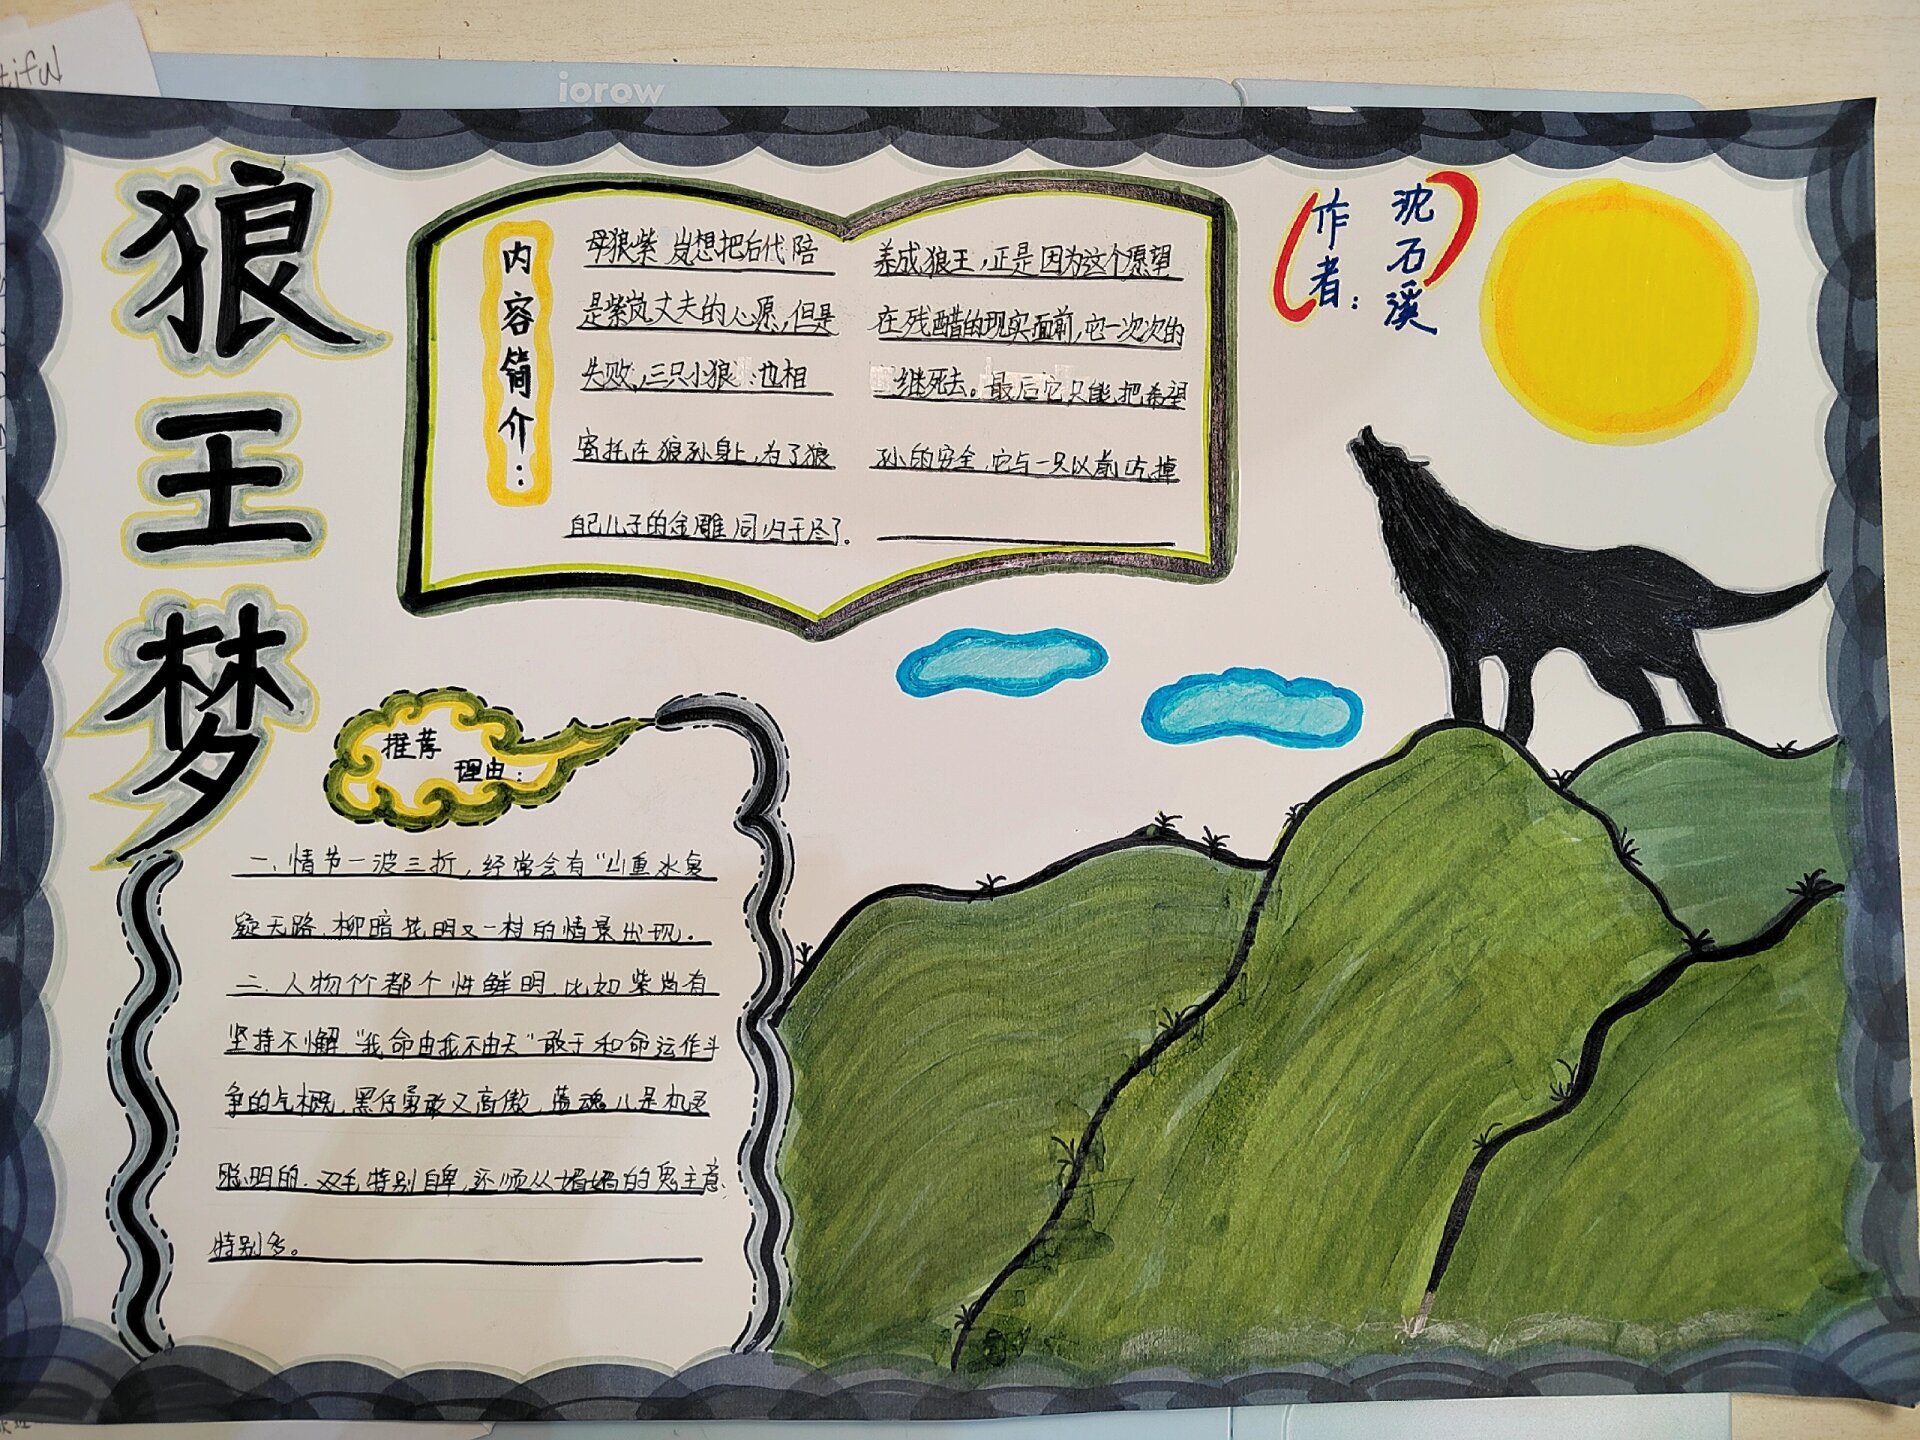 tiful
iorow
狼王梦
作者：
沈石溪
内容简介：
母狼紫岚想把后代陪养成狼王，正是因为这个愿望
是紫岚丈夫的心愿，但是在残酷的现实面前，它一次次的
失败，三只小狼也相继死去。最后它只能把希望
寄托在狼孙身上，为了狼孙的安全，它与一只以前吃掉
自己儿子的金雕同归于尽了。
推荐
理由：
一、情节一波三折，经常会有“山重水复
疑无路，柳暗花明又一村的情景出现。
二、人物个都个性鲜明，比如紫岚有
坚持不懈，“我命由我不由天”敢于和命运作斗
争的气概，黑仔勇敢又高傲，蓝魂儿是机灵
聪明的，双毛特别自卑，还顺从媚媚的鬼主意
特别多。